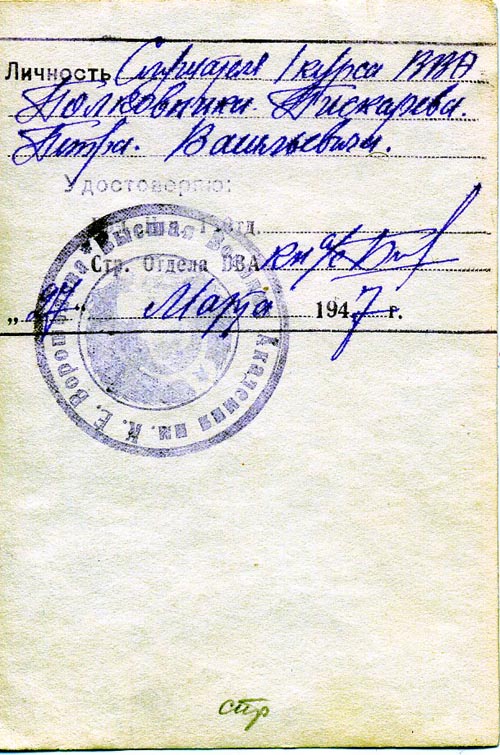 Личность Слушателя I курса ВВА
Полковника Пискарева
Петра Васильевича.
Удостоверяю:
Отд.
Стр. Отдела ВВА
„27“ Марта 1947 г.
Высшая Военная Академия им. К. Е. Ворошилова
стр